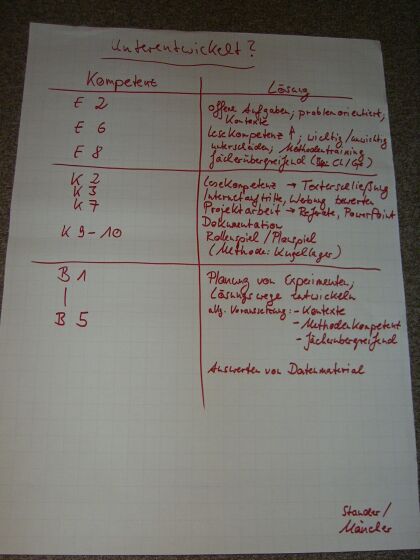 Unterentwickelt?
Kompetenz Lösung
E 2 offene Aufgaben; problemorientiert,
Kontexte
E 6 Lesekompetenz ↑; wichtig/unwichtig
E 8 unterscheiden; Methodentraining
fächerübergreifend (CL/Ge)
K 2 Lesekompetenz → Texterschließung
K 3 Internetauftritte, Werbung bewerten
K 7 Projektarbeit → Referate, PowerPoint
Dokumentation
K 9-10 Rollenspiel / Planspiel
(Methode: Kugellager)
B 1 Planung von Experimenten,
| Lösungswege entwickeln
B 5 allg. Voraussetzung: - Kontexte
- Methodenkompetent
- fächerübergreifend
Auswerten von Datenmaterial
Stander/